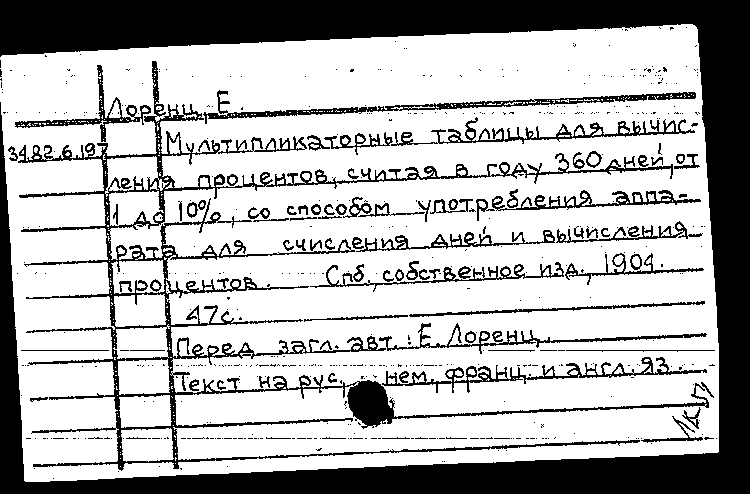 Лоренц, Е.
34.82.6.197 Мультипликаторные таблицы для вычис-
ления процентов, считая в году 360 дней, от
1 до 10%, со способом употребления аппа-
рата для счисления дней и вычисления
процентов. Спб., собственное изд., 1904.
47с.
Перед загл. авт.: Е. Лоренц.
Текст на рус., нем., франц. и англ. яз.